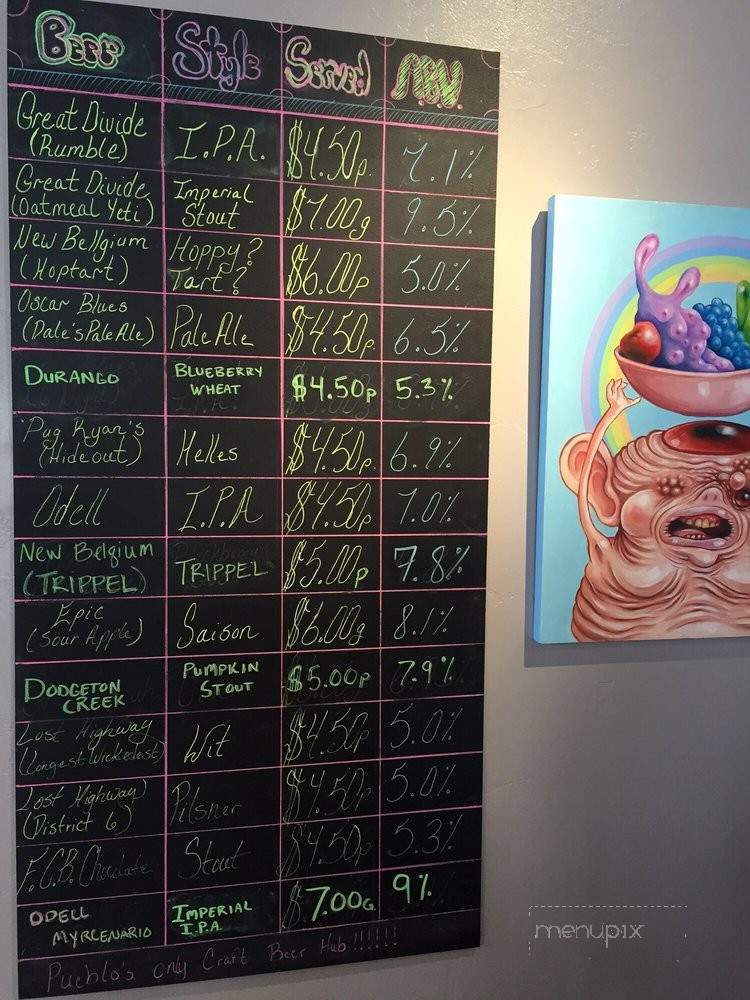 Beer Style Served A.B.V.
Great Divide
(Rumble) I.P.A. $4.50p. 7.1%
Great Divide
(Oatmeal Yeti) Imperial
Stout $7.00g 9.5%
New Bellgium
(Hoptart) Hoppy?
Tart? $6.00p 5.0%
Oscar Blues
(Dale's Pale Ale) Pale Ale $4.50p. 6.5%
DURANGO BLUEBERRY
WHEAT $4.50p 5.3%
Pug Ryan's
(Hideout) Helles $4.50p. 6.9%
Odell I.P.A $4.50p 7.0%
New Belgium
(TRIPPEL) TRIPPEL $5.00p 7.8%
Epic
(Sour Apple) Saison $6.00g 8.1%
DODGETON
CREEK PUMPKIN
STOUT $5.00p 7.9%
Lost Highway
(Longest Wickedest) Wit $4.50p 5.0%
Lost Highway
(District 6) Pilsner $4.50p 5.0%
F.C.B. Chocolate Stout $4.50p 5.3%
ODELL
MYRCENARIO IMPERIAL
I.P.A. $7.00G. 9%
Pueblo's only Craft Beer Hub!!!!!!
menupix